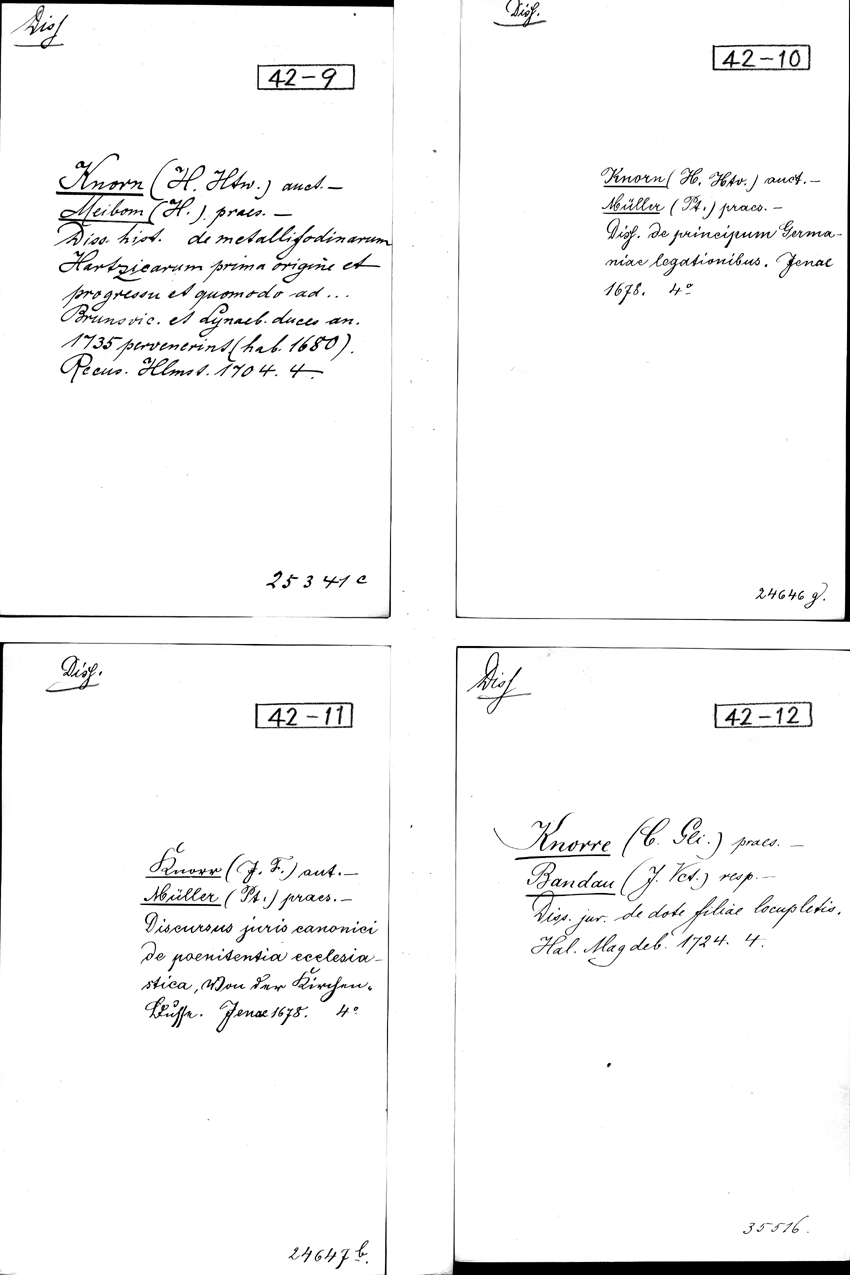 Diss
42-9
Knorn (H. Htw.) auct. —
Meibom (H.) praes. —
Diss. hist. de metallifodinarum
Hartzicarum prima origine et
progressu et quomodo ad ...
Brunsvic. et Lynaeb. duces an.
1735 pervenerint (hab. 1680).
Recus. Hlmst. 1704. 4.
25341 c
Diss.
42-10
Knorn (H. Htw.) auct. —
Müller (Pt.) praes. —
Diss. de principum Germa-
niae legationibus. Jenae
1678. 4°
24646 g.
Diss.
42-11
Knorr (J. F.) aut. —
Müller (Pt.) praes. —
Discursus juris canonici
de poenitentia ecclesia-
stica, Von der Kirchen-
Busse. Jenae 1678. 4°
24647 b.
Diss
42-12
Knorre (C. Gli.) praes. —
Bandau (J. Vct.) resp. —
Diss. jur. de dote filiae locupletis.
Hal. Magdeb. 1724. 4.
35516.